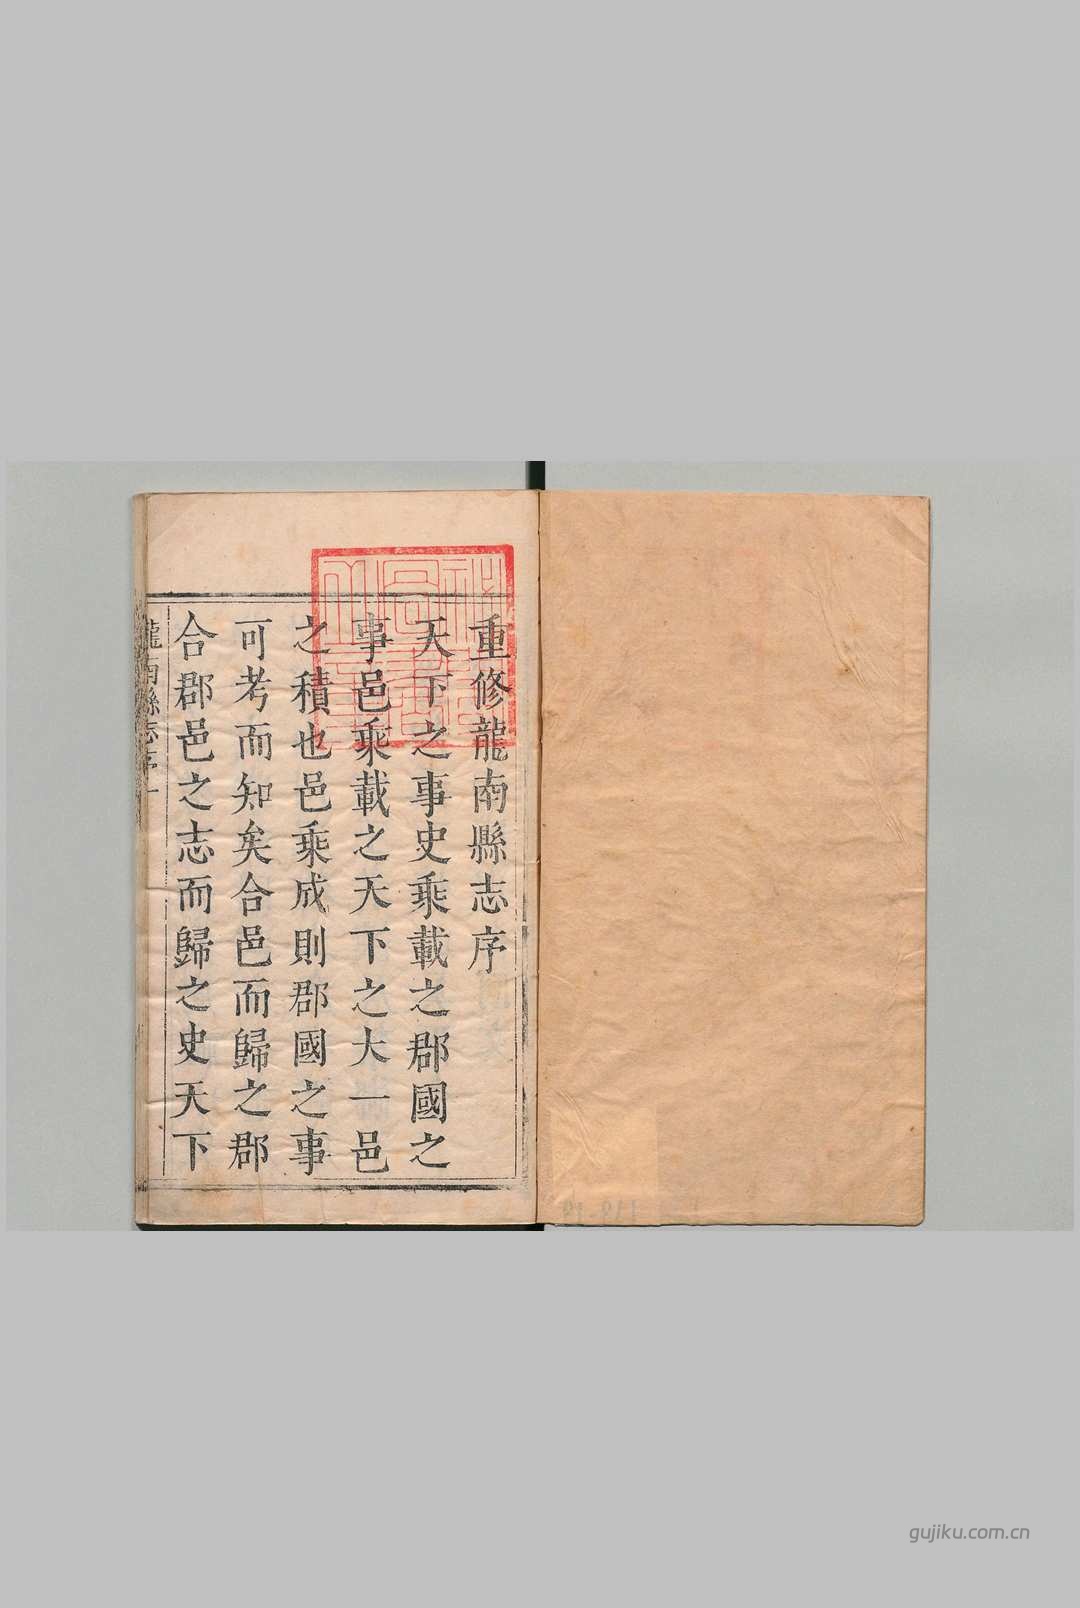 重修龍南縣志序
天下之事史乘載之郡國之
事邑乘載之天下之大一邑
之積也邑乘成則郡國之事
可考而知矣合邑而歸之郡
合郡邑之志而歸之史天下
龍南縣志序一
119-19
gujiku.com.cn